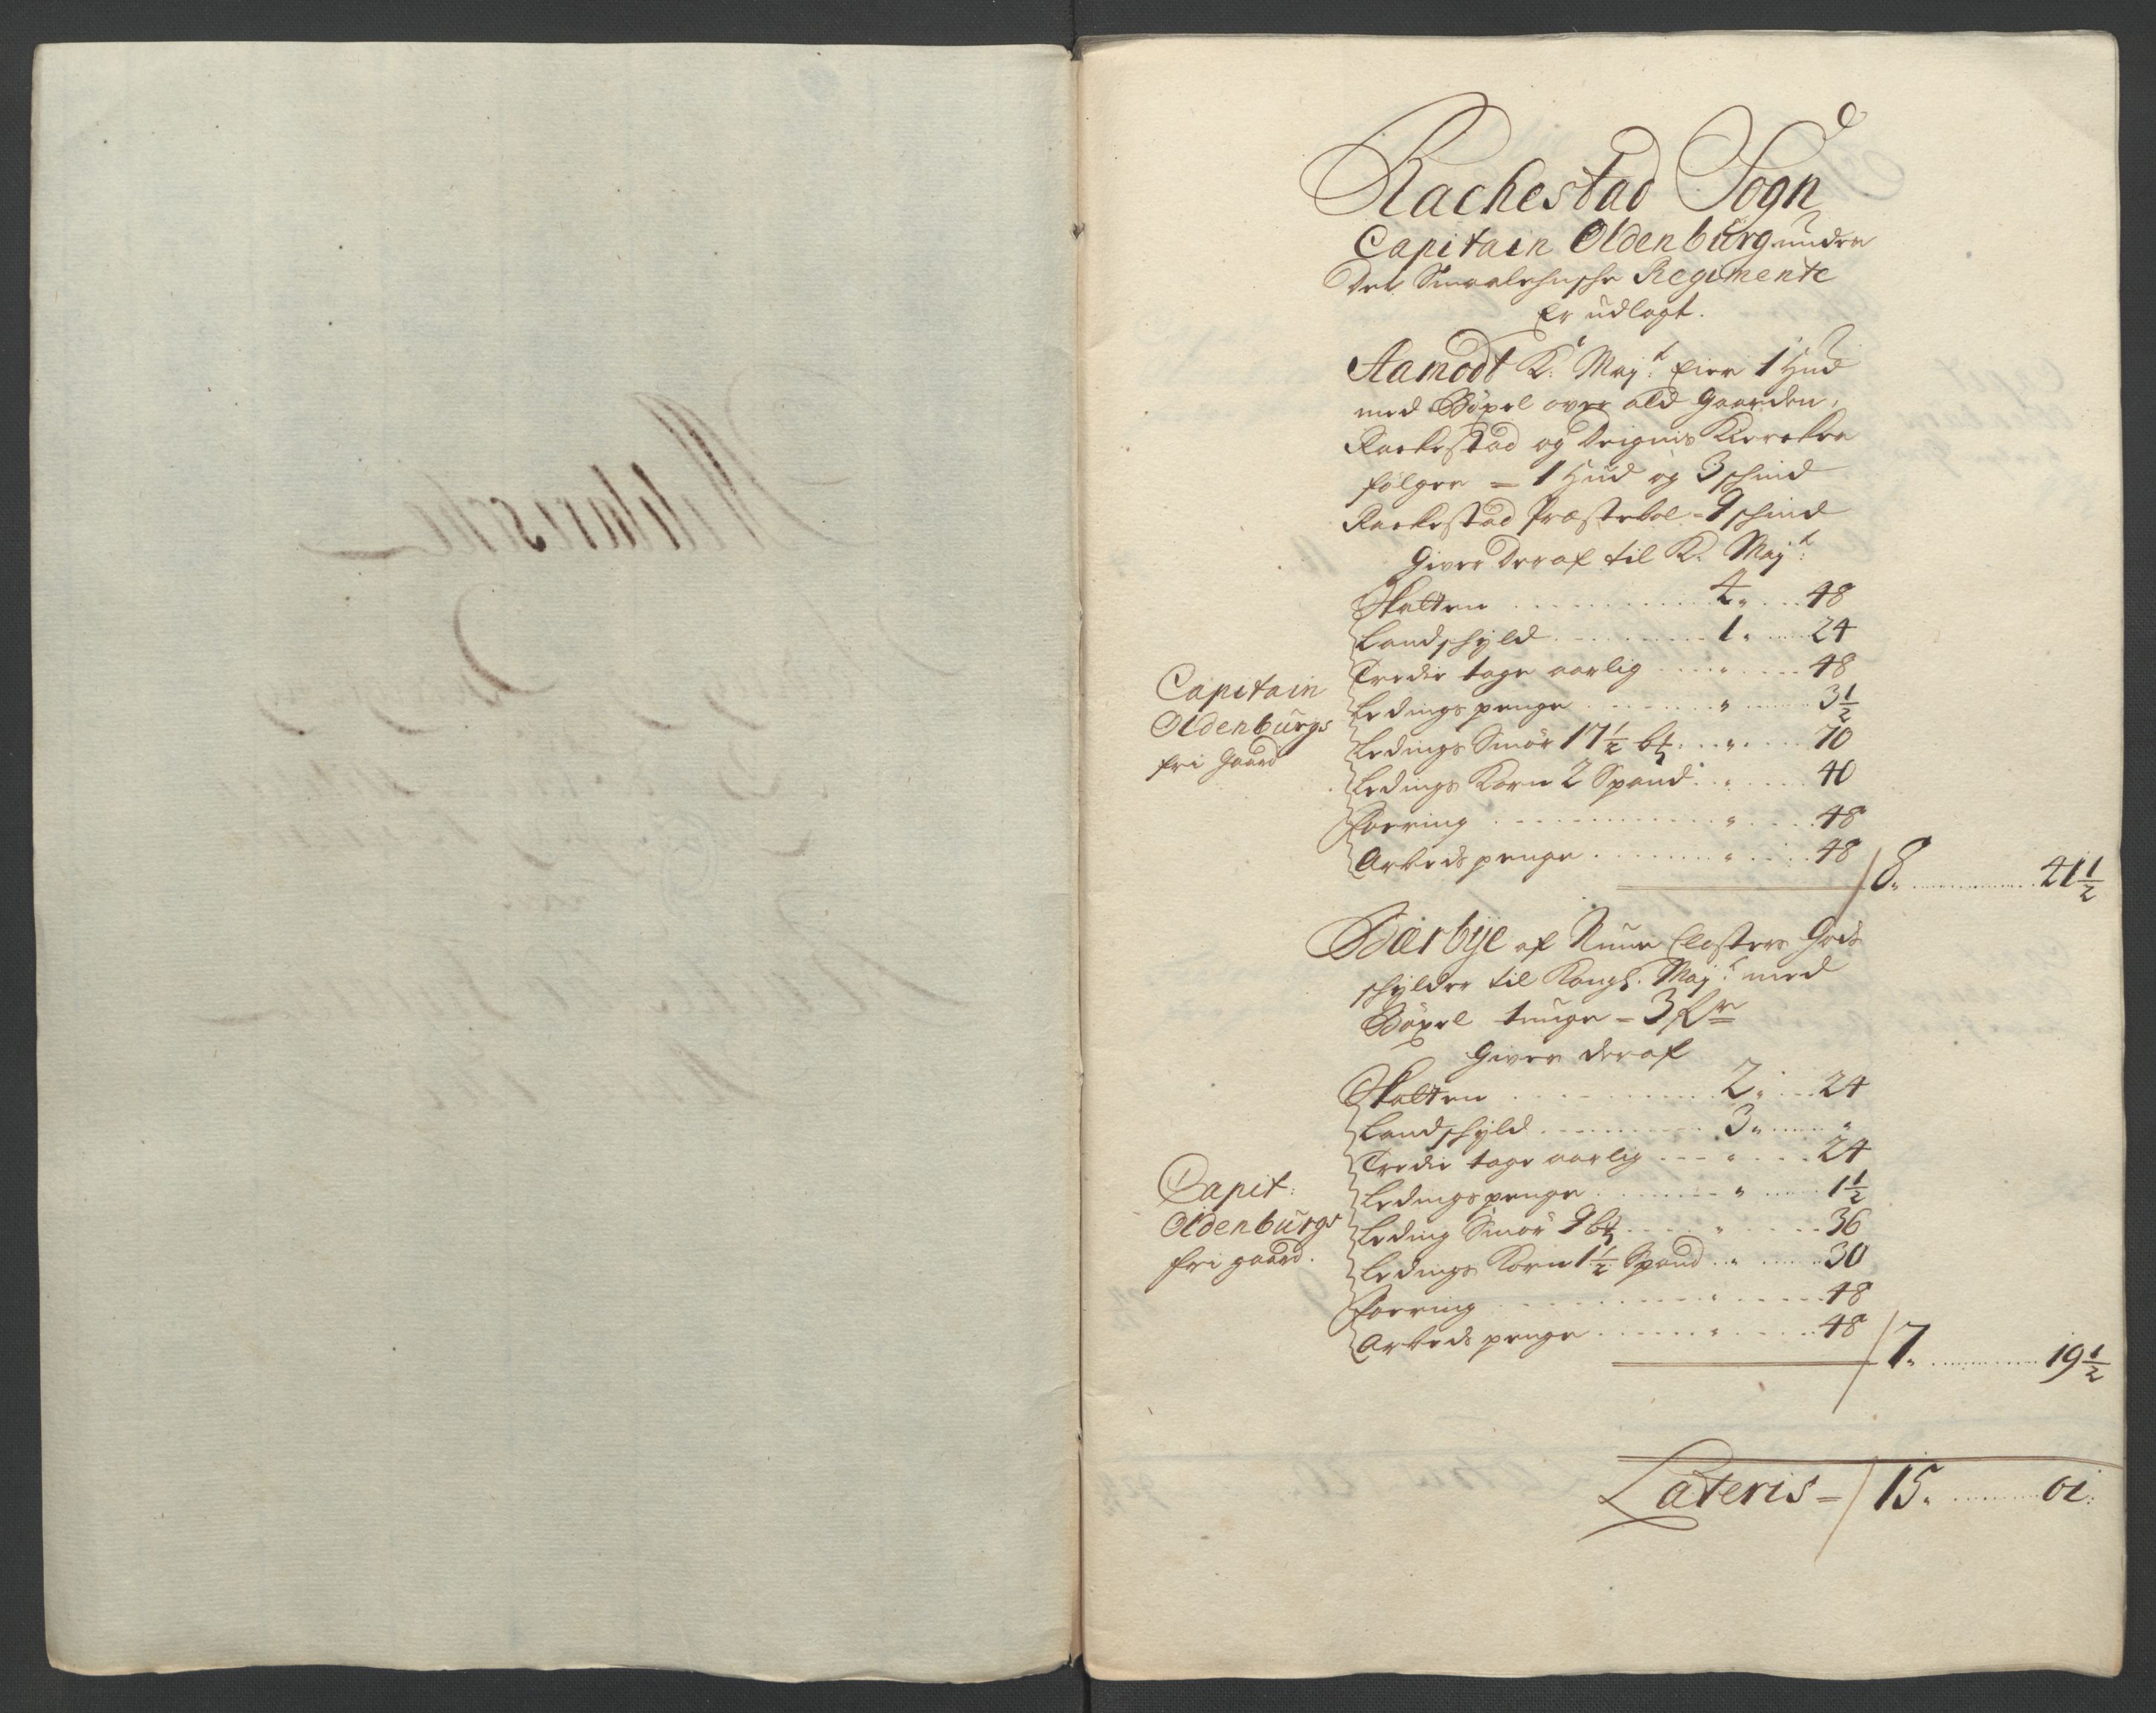 Rachestad Sogn
Capitain Oldenburg under
Det Smaalehnsche Regimente
Er udlagt.
Aamodt K: Maj:t Eier 1 Hud
med Böxel over ald Gaarden,
Rackestad og Deignis Kierker
følger = 1 Hud og 3 schind
Rackestad Præstebol = 9 schind
Giver Deraf til K. Maj:t
Skatten 4 " 48
Landschyld 1 " 24
Tredie tage aarlig " 48
Ledings penge " 3½
Ledings Smör 17½ b " 70
Ledings Korn 2 Spand " 40
Foering " 48
Arbeds penge " 48
8 " 41½
Capitain
Oldenburgs
fri Gaard
Bærbye af Nunne Closters Gods
schylder til Kongl. Maj:t med
Böxel tunge = 3
Giver deraf
Skatten 2 " 24
Landschyld 3 " "
Tredie tage aarlig " 24
Ledings penge " 1½
Leding Smör 9 b " 36
Ledings Korn 1½ Spand " 30
Foering " 48
Arbeds penge " 48
7 " 19½
Capit:
Oldenburgs
fri gaard.
Lateris = 15 " 01: